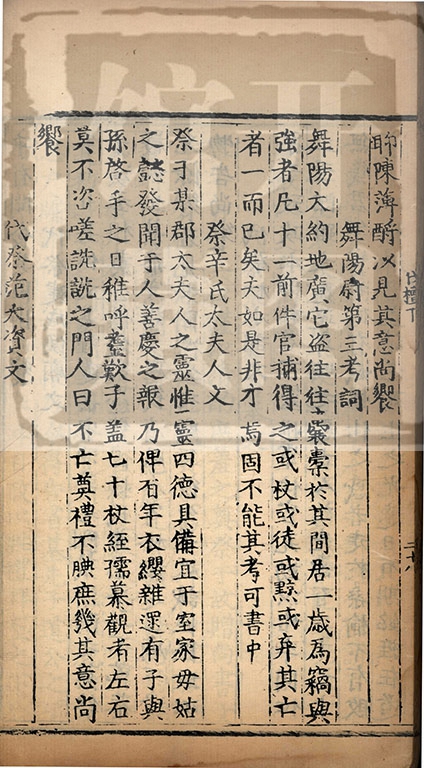 聊陳薄酹以見其意尚饗
舞陽尉第三考詞
舞陽大約地廣它盗往往囊橐於其間居一歲為竊與
強者凡十一前件官捕得之或杖或徒或黥或弃其亡
者一而已矣夫如是非才焉固不能其考可書中
祭辛氏太夫人文
祭于某郡太夫人之靈惟靈四德具備宜于室家毋姑
之懿發聞于人善慶之報乃俾百年衣纓雜還有子與
孫啓手之日稚呼耋歎子盖七十杖絰孺慕觀者左右
莫不咨嗟詵詵之門人曰不亡奠禮不腆庶幾其意尚
饗
代祭范大資文